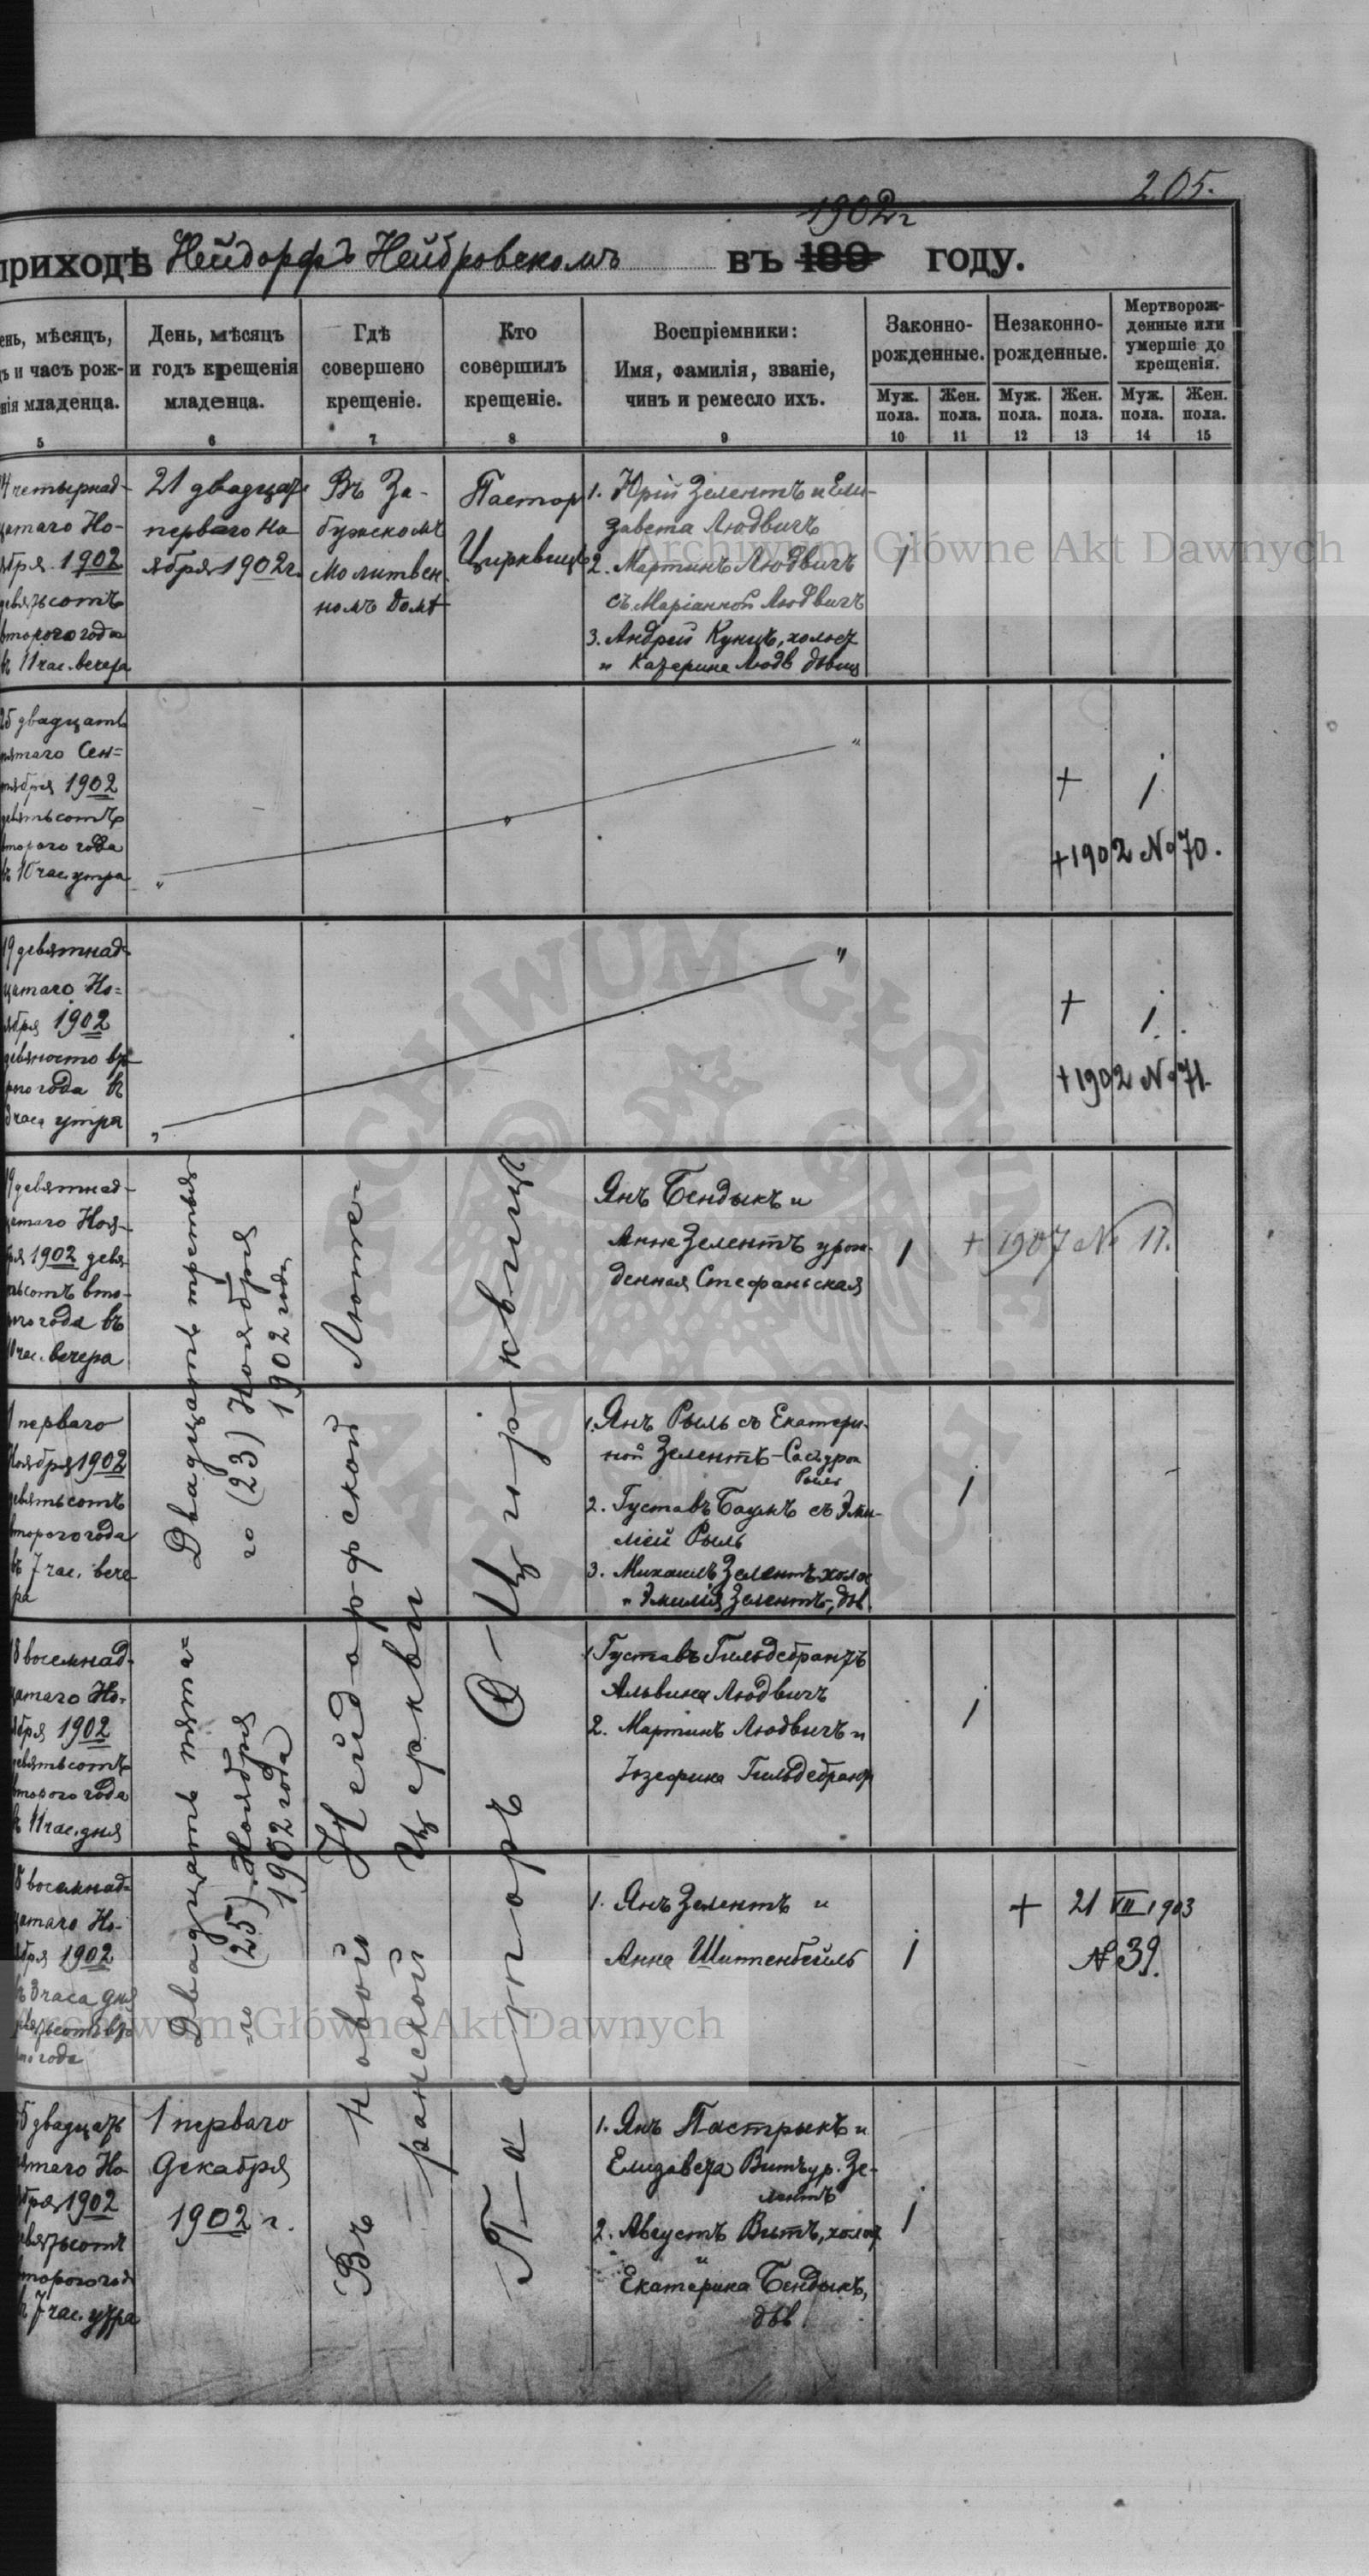 205.
приходѣ Нейдорфъ Нейбровскомъ въ 189 1902 г году.
День, мѣсяцъ и годъ крещенія младенца.
Гдѣ совершено крещеніе.
Кто совершилъ крещеніе.
Воспріемники: Имя, фамилія, званіе, чинъ и ремесло ихъ.
Законно-рожденные.
Незаконно-рожденные.
Мертворож-денные или умершіе до крещенія.
ень, мѣсяцъ,
и часъ рож-
нія младенца.
Муж. пола. Жен. пола. Муж. пола. Жен. пола. Муж. пола. Жен. пола.
5 6 7 8 9 10 11 12 13 14 15
14 четырнад-
цатаго Но-
ября 1902
девятьсотъ
второго года
въ 11 час. вечера
21 двадцать
перваго Но
ября 1902 г.
Въ За-
бужскомъ
молитвен
номъ домѣ
Пасторъ
Цирквицъ
1. Юрій Зелентъ и Ели-
завета Людвигъ
2. Мартинъ Людвигъ
съ Маріанной Людвигъ
3. Андрей Кунцъ, холост
и Катерина Людв дѣвиц
1
25 двадцать
пятаго Сен=
тября 1902
девятьсотъ
второго года
въ 10 час. утра
+ 1
+1902 № 70.
19 девятнад-
цатаго Но=
ября 1902
рого года въ
часа утра
+ 1.
+1902 № 71.
19 девятнад-
цатаго Ноя-
бря 1902 девя-
тьсотъ вто-
рого года въ
час. вечера
Двадцать третья-
го (23) Ноября
1902 года
Янъ Бендыкъ и
Анна Зелентъ урож-
денная Стефаньская
1
+ 1907 № 17.
1 перваго
Ноября 1902
девятьсотъ
второго года
въ 7 час. вече
ра
1. Янъ Рыль съ Екатери-
ной Зелентъ-
Рыль
2. Густавъ Баумъ съ Эми-
ліей Рыль
3. Михаилъ Зелентъ холос
и Эмилія Зелентъ, дѣв.
1
18 восемнад-
цатаго Но-
ября 1902
девятьсотъ
второго года
въ 11 час. дня
Двадцать пята=
го (25) Ноября
1902 года
1 Густавъ Гильдебрантъ
Альвина Людвигъ
2. Мартинъ Людвигъ и
Юзефина Гильдебрант
1
18 восемнад-
цатаго Но-
ября 1902
въ 3 часа дня
девятьсотъ вто
рого года
1. Янъ Зелентъ и
Анна Шиттенбейль
1
+ 21 VII 1903
№ 39.
Въ новой Нейдорфской Люте-
ранской Церкви
Пасторъ Э. Цирквицъ
25 двадцать
пятаго Но
ября 1902
девятьсотъ
второго года
въ 7 час. утра
1 перваго
Декабря
1902 г.
1. Янъ Пастрыкъ и
Елизавета Витъ ур. Зе-
лентъ
2. Августъ Витъ, холост
и
Екатерина Бендыкъ,
дѣв.
1
Archiwum Główne Akt Dawnych
ARCHIWUM GŁÓWNE AKT DAWNYCH
Archiwum Główne Akt Dawnych